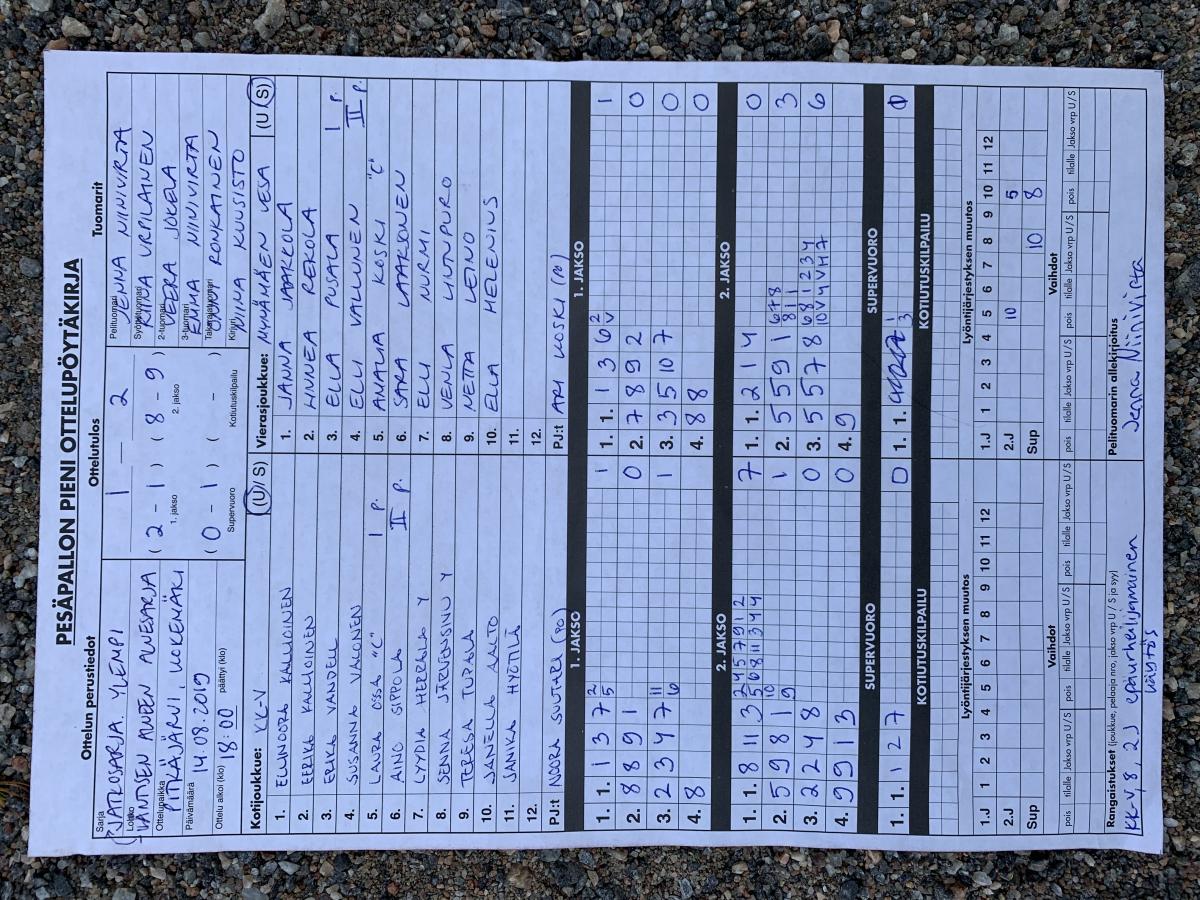 PESÄPALLON PIENI OTTELUPÖYTÄKIRJA
Ottelun perustiedot
Ottelutulos
Tuomarit
Sarja
JATKOSARJA YLEMPI
Lohko
LÄNTISEN ALUEEN ALUESARJA
Ottelupaikka
PITKÄJÄRVI, KOKEMÄKI
Päivämäärä
14.08.2019
Ottelu alkoi (klo) 18:00 päättyi (klo)
1 — 2
( 2 - 1 ) ( 8 - 9 )
1. jakso 2. jakso
( 0 - 1 ) ( - )
Supervuoro Kotiutuskilpailu
Pelituomari JENNA NIINIVIRTA
Syöttötuomari RIINA URPILAINEN
2-tuomari VEERA JOKELA
3-tuomari EMMA NIINIVIRTA
Takarajatuomari ONNI RONKAINEN
Kirjuri NIINA KUUSISTO
Kotijoukkue: KK-V (U / S)
1. ELLINOORA KALLIOINEN
2. EERIKA KALLIOINEN
3. EERIKA VANDELL
4. SUSANNA VALONEN
5. LAURA OSSA "C" I P.
6. AINO SIPPOLA II P.
7. LYYDIA HERRALA Y
8. SENNA JÄRVENSIVU Y
9. TERESA TUPALA
10. JANELLA AALTO
11. JANIKA HYÖTILÄ
12.
PJ:t NOORA SUUTARI (PO)
Vierasjoukkue: MYNÄMÄEN VESA (U / S)
1. JANNA JAAKKOLA
2. LINNEA REKOLA
3. ELLA PUSALA I P.
4. ELLI VALLUNEN II P.
5. AMALIA KOSKI "C"
6. SARA LAAKSONEN
7. ELLI NURMI
8. VENLA LINTUPURO
9. NETTA LEINO
10. ELLA HELENIUS
11.
12.
PJ:t ARI KOSKI (PO)
1. JAKSO
1. 1. 1 3 7 2 5 1
2. 8 8 9 1 0
3. 2 3 4 7 11 6 1
4. 8
1. JAKSO
1. 1. 1 3 6 2 V 1
2. 7 8 9 2 0
3. 3 5 10 7 0
4. 8 8 0
2. JAKSO
1. 1. 8 11 3 2 4 5 7 9 1 2 7
5 6 8 11 3 4 4
2. 5 9 8 1 10 9 1
3. 2 2 4 8 0
4. 9 9 1 3 0
2. JAKSO
1. 1. 2 1 4 0
2. 5 5 9 1 6 7 8 3
8 1 1
3. 5 5 7 8 6 8 1 2 3 4 6
10 V 4 V H 7
4. 9
SUPERVUORO
1. 1. 1 2 7 0
SUPERVUORO
1. 1. 1 3 1
KOTIUTUSKILPAILU
KOTIUTUSKILPAILU
Lyöntijärjestyksen muutos
1.J 1 2 3 4 5 6 7 8 9 10 11 12
2.J
Sup
Lyöntijärjestyksen muutos
1.J 1 2 3 4 5 6 7 8 9 10 11 12
2.J 10 5
Sup 10 8
Vaihdot
pois tilalle Jakso vrp U/S pois tilalle Jakso vrp U/S pois tilalle Jakso vrp U/S
Vaihdot
pois tilalle Jakso vrp U/S pois tilalle Jakso vrp U/S pois tilalle Jakso vrp U/S
Rangaistukset (joukkue, pelaaja nro, jakso vrp U / S ja syy)
KK-V, 8, 2J epäurheilijamainen
käytös
Pelituomarin allekirjoitus
Jenna Niinivirta